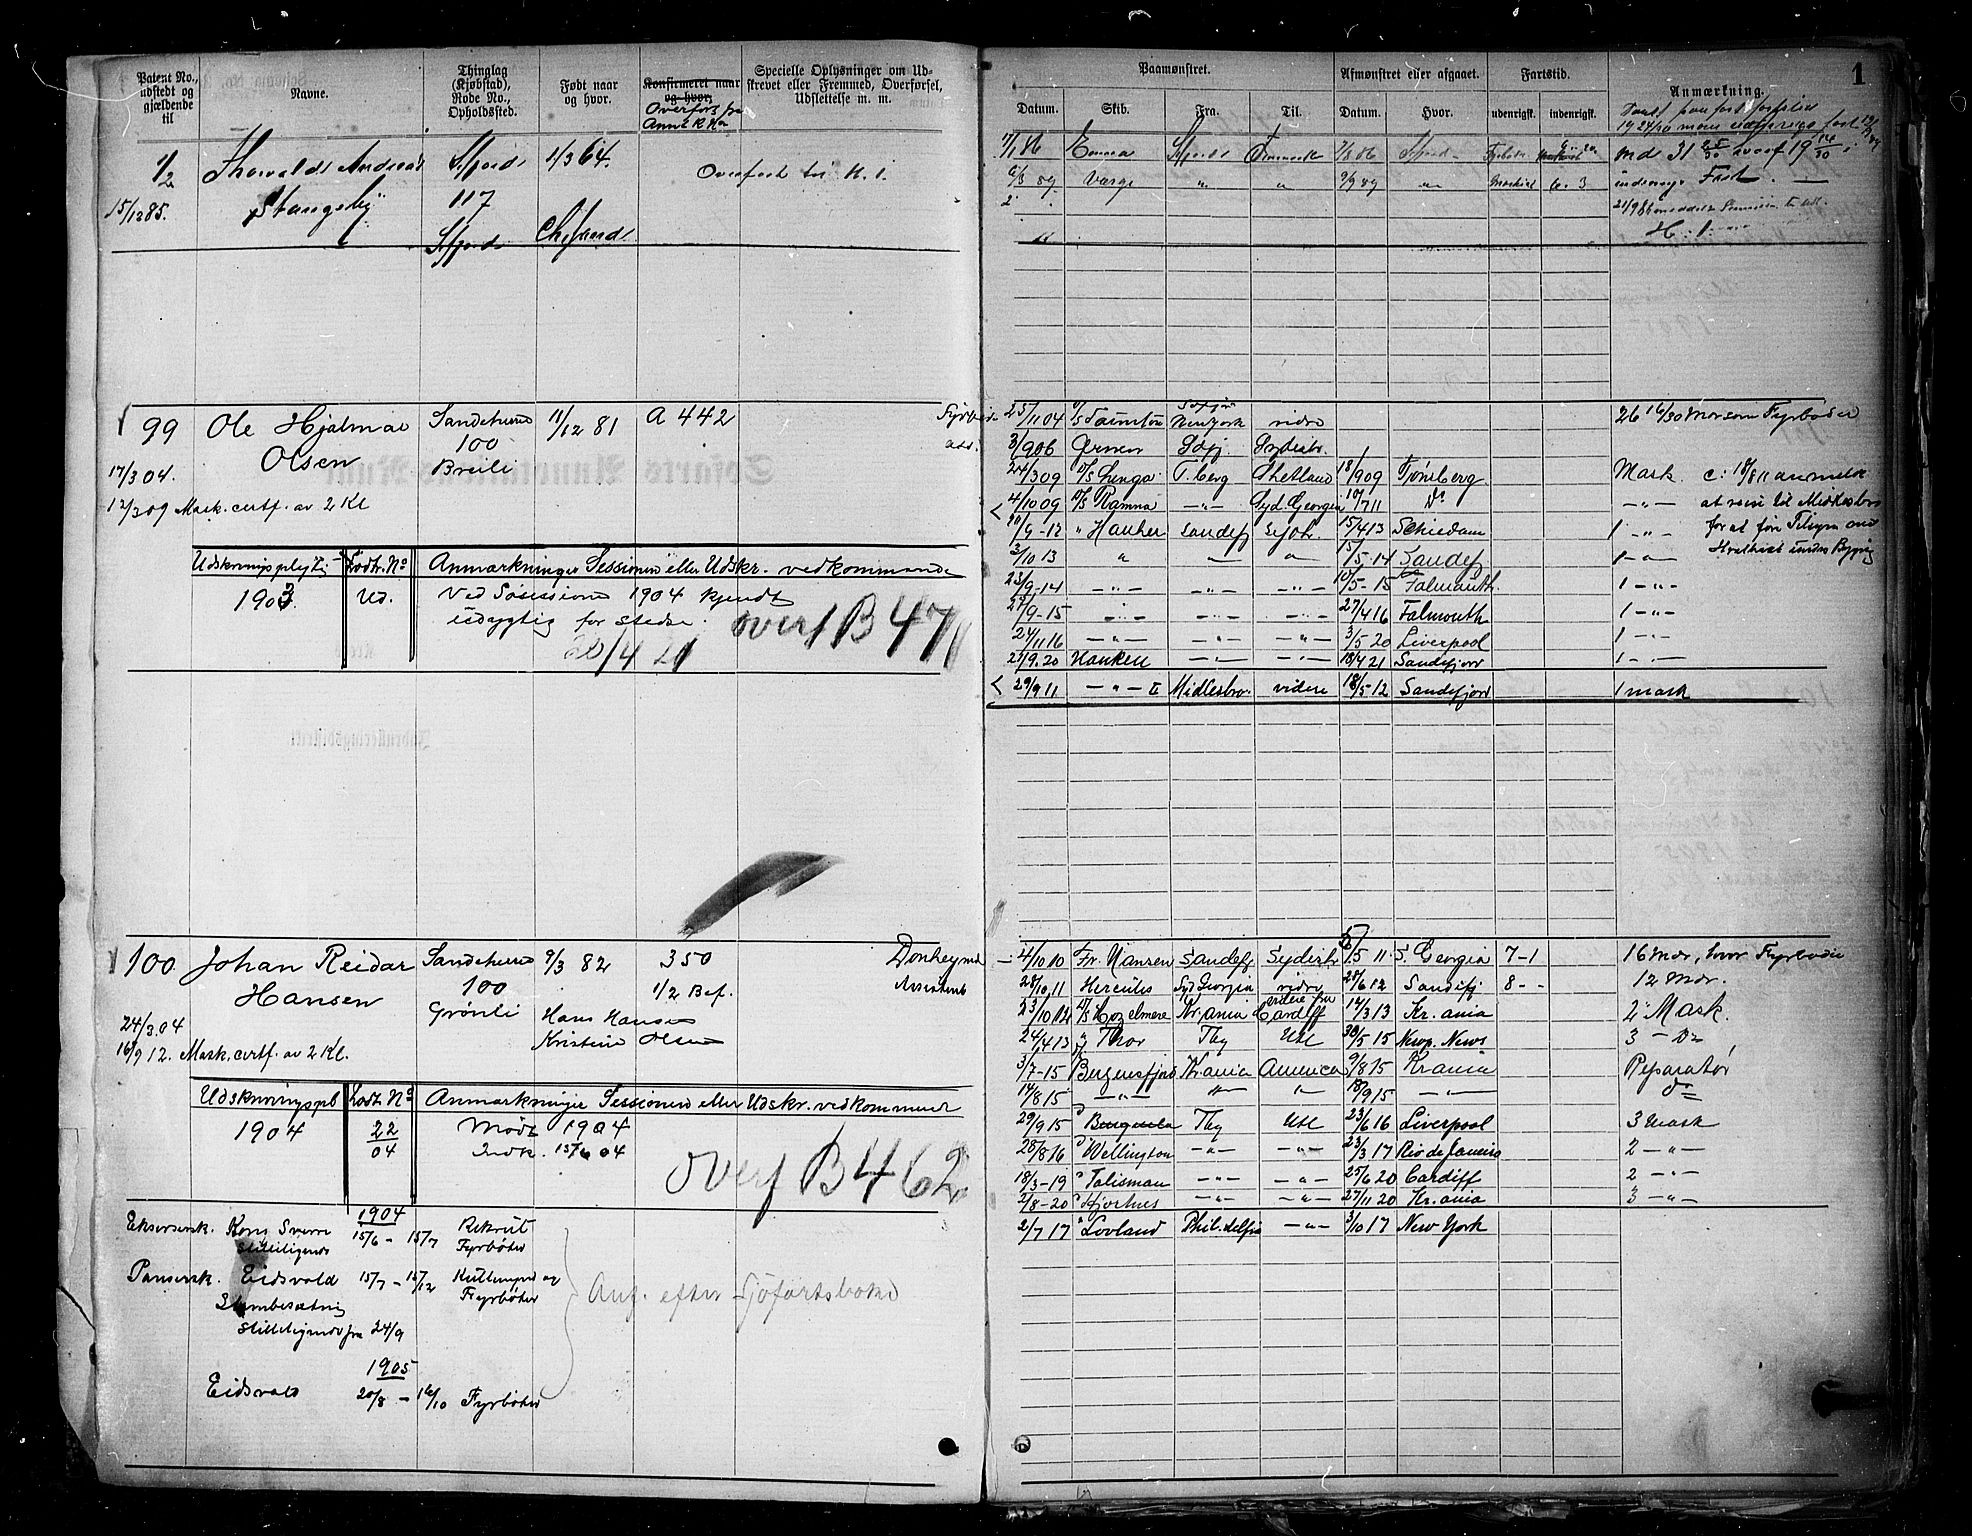 Patent No., udstedt og gjældende til
Navne.
Thinglag (Kjøbstad), Rode No., Opholdssted.
Født naar og hvor.
Konfirmeret naar og hvor.
Overført fra
Specielle Oplysninger om Udskrevet eller Fremmed, Overførsel, Udslettelse m. m.
1/2
Thorvald Andreas
Sfjord
1/3 64.
Overført til
15/12 85.
Stangeby
117
Sfjord
99
Ole Hjalmar
Sandeherred
11/12 81
A 442
Olsen
100
Breili
17/3 04.
12/3 09 Mask. certf. av 2 Kl
Udskrivningspligtig
Lodtr. No
Anmærkninger Sessionen eller Udskr. vedkommende
1903
Ud.
Ved Søsession 1904 kjendt
udygtig for stedse.
overf B 471
20/4 21
100
Johan Reidar
Sandeherred
9/3 82
350
Donkeymd
Hansen
100
1/2 Bef.
Assistent
Grönli
Hans Hansen
24/3 04
Kristine Olsen
16/9 12. Mask. certf. av 2 Kl.
Udskrivningspl
Lodt. No
Anmærkninger Sessionen eller Udskr. vedkommende
1904
22/04
Mødt 1904
Indk. 15/6 04
overf B 462
1904
Eksersersk. Kong Sverre
15/6 – 15/7
Rekrut
Stilleliggende
Fyrbøter
Pansersk. Eidsvold
15/7 – 15/12
Kullemped og
Fyrbøter
Anf. efter Sjöfartsboken
Stambesætning
Stilleliggende fra 24/9
1905
Eidsvold
20/8 – 16/10
Fyrbøter
1
Paamønstret.
Afmønstret eller afgaaet.
Fartstid.
Anmærkning.
Datum.
Skib.
Fra.
Til.
Datum.
Hvor.
udenrigsk.
indenrigsk.
1/1 86 Emma Sfjord 7/8 86 Sfjord
89 Varge " " 9/9 89
25/11 04 New York vidre 26 16/30 Mdr som Fyrbøder
3/9 06
24/3 09 T.berg Shetland 18/9 09 Tønsberg Mask. c: 18/8 11 anmeldt
4/10 09 D/S Ramna —"— Syd. Georgia 10/7 11 Do —"— at reise til Midlesbro
20/9-12 " Hauken Sandefj 15/4 13 Schiedam 1 —"— for at føre Tilsyn med
3/10 13 " — " 15/5-14 Sandefj 1 —"— Hvalbaad under Bygning
23/9-14 —"— —"— —"— 10/5-15 Falmouth. 1 —"—
27/9-15 —"— —"— —"— 27/4 16 Falmouth 1 —"—
24/11 16 —"— —"— —"— 3/5 20 Liverpool 1 —"—
25/9.20 Hauken —"— —"— 18/4 21 Sandefjord 1 —"—
29/9 11 —"— II Midlesbro. videre 18/5-12 Sandefjord 1 mask
4/10 10 Fr. Nansen Sandefj 5/5 11 S. Georgia 7-1 16 Mdr, hvor Fyrbøder
28/10,11 Hercules Syd Georgia vidre 28/6 12 Sandefj 8 - - 12 Mdr.
videre fra
23/10 12 D/S Hazelmere Kr.ania Cardiff 14/3 13 Kr. ania 2 Mask.
24/4 13 " Thor Tbg Utl 30/5 15 Newp. News 3 — Do
3/7-15 Bergensfjord Kr.ania America 9/8 15 Kr ania Reparatør
14/8 15 —"— " " 18/9 15 —"— do
29/9 15 Tbg Utl 23/6 16 Liverpool 3 mask
28/8 16 " Wellington —"— —"— 23/3 17 Rio de Janeiro 2 —"—
18/3-19 " Talisman —"— —"— 25/6 20 Cardiff 2 —"—
2/8-20 —"— —"— 27/11 20 Kr. ania 3 —"—
2/7 17 " Lovland Phil.delfia —"— 3/10 17 New York